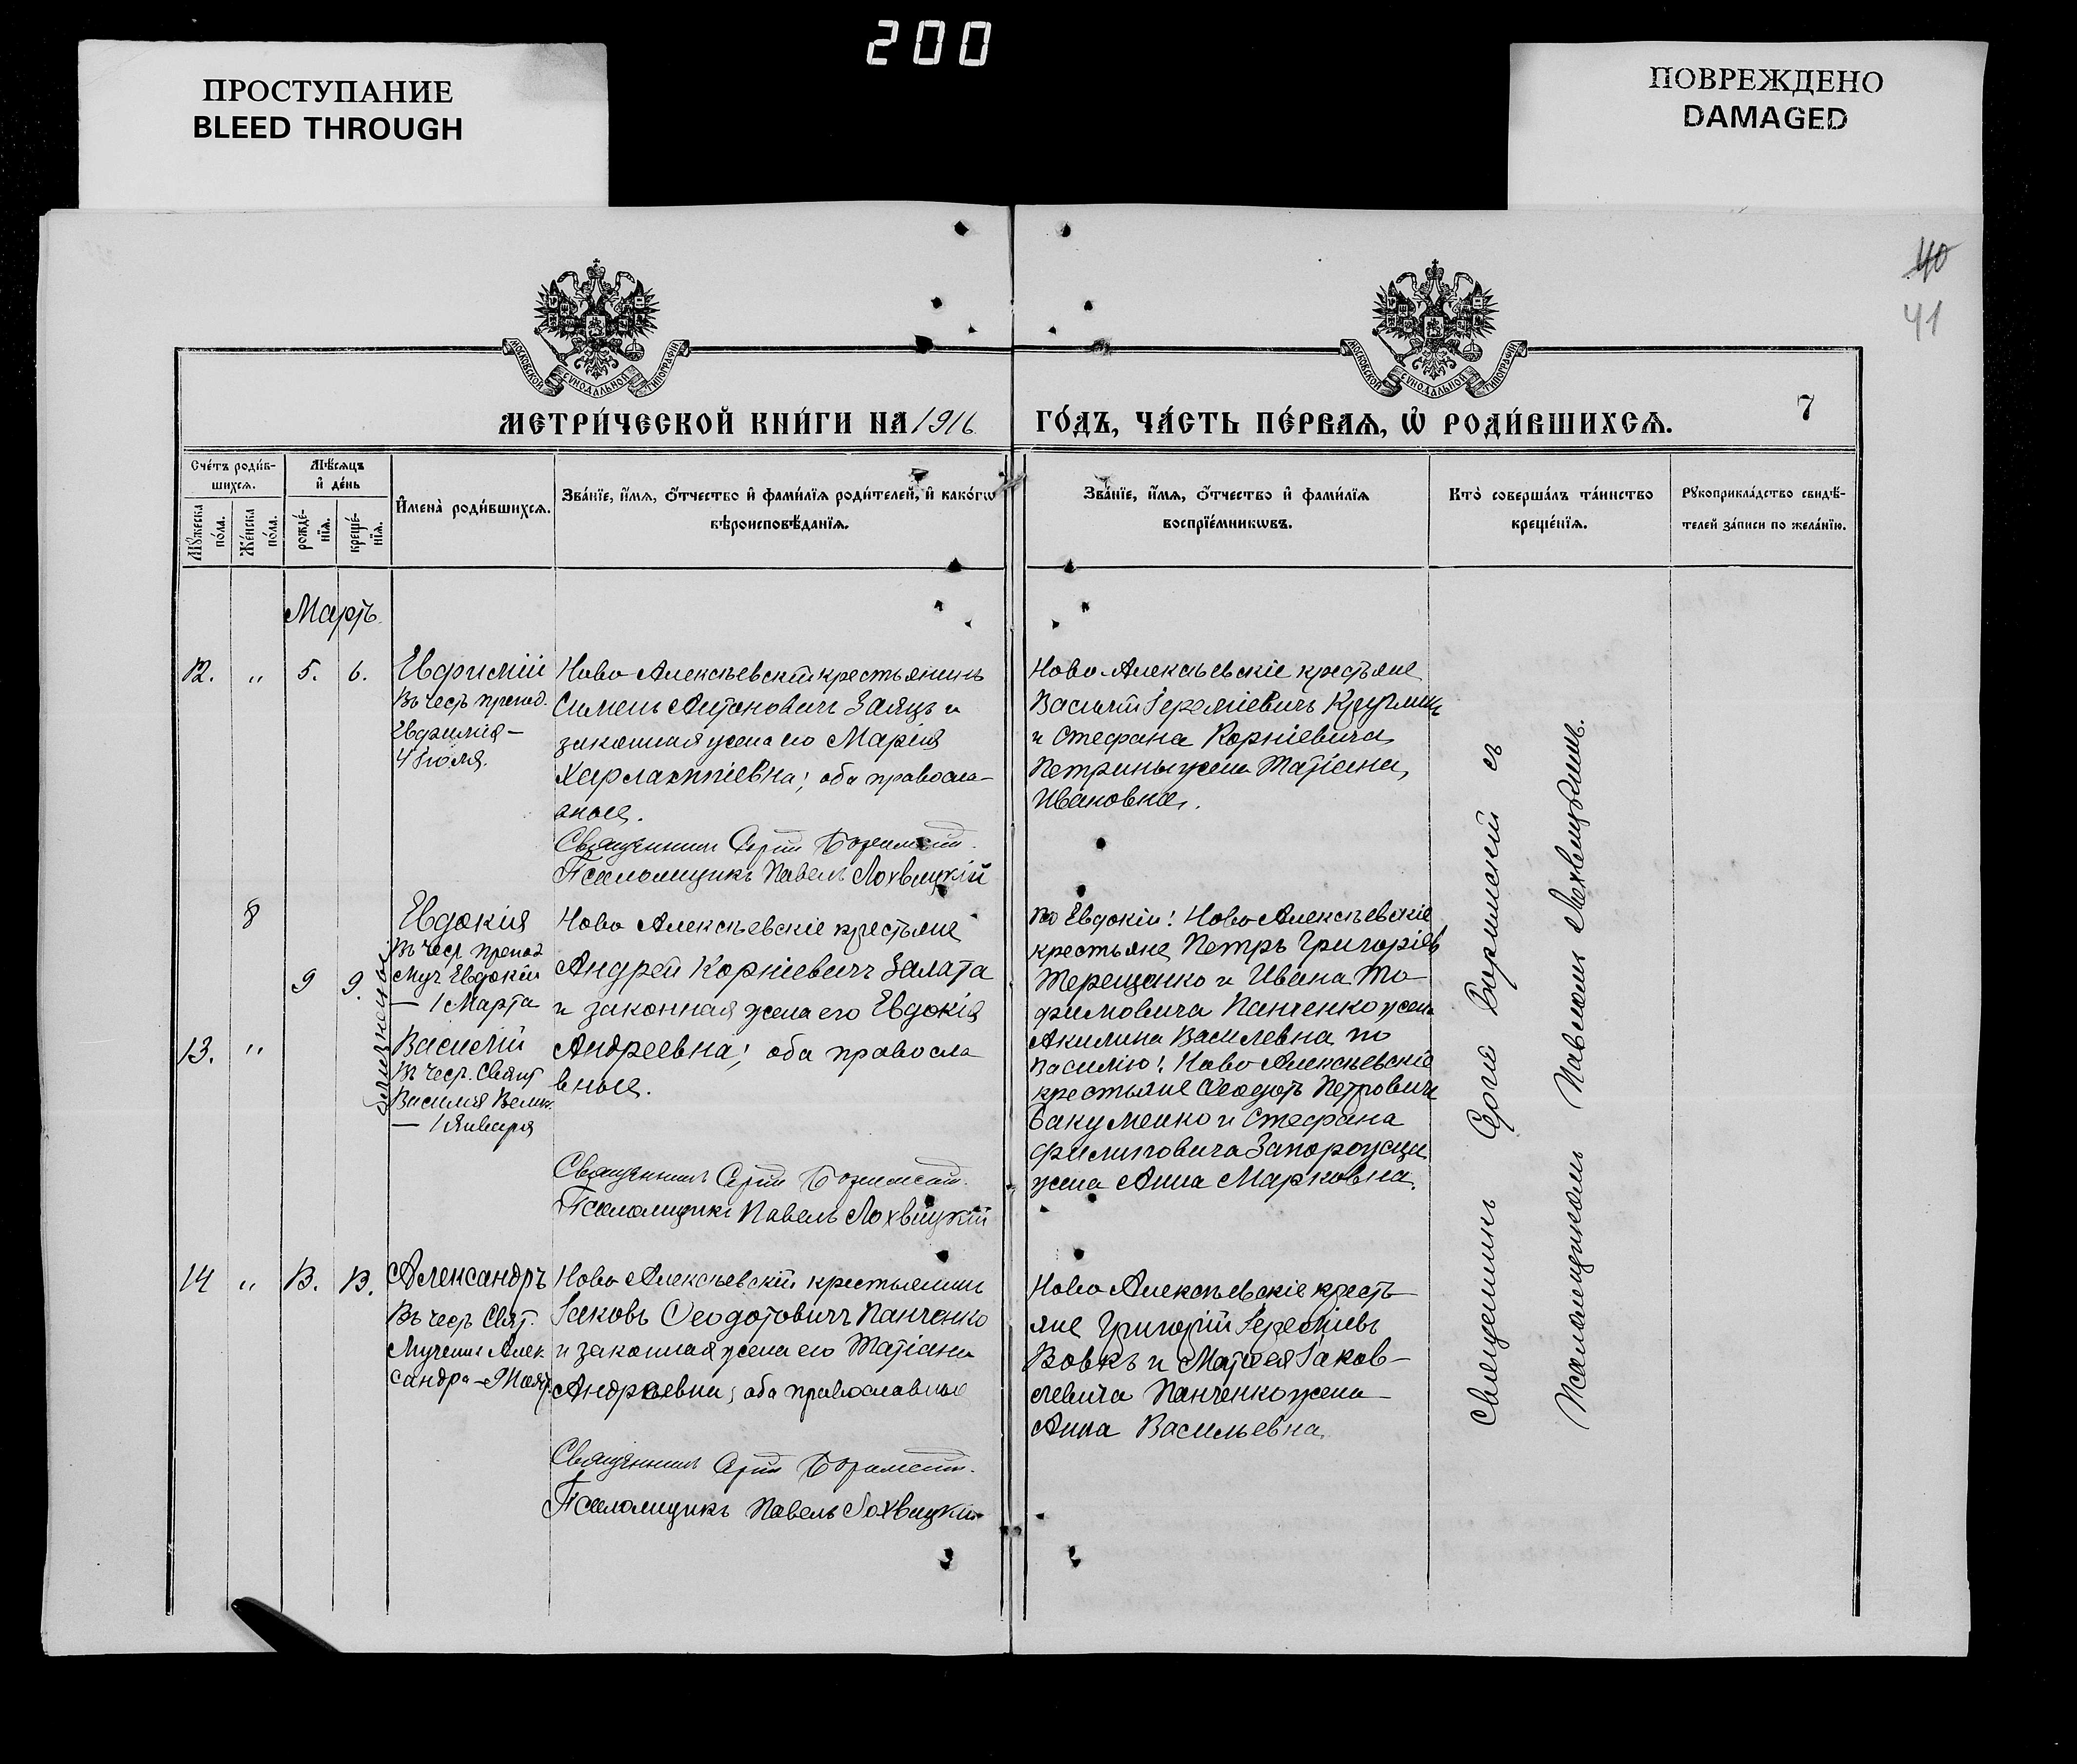 200
ПРОСТУПАНИЕ
BLEED THROUGH
ПОВРЕЖДЕНО
DAMAGED
40
41
МОСКОВСКОЙ СѴНОДАЛЬНОЙ ТИПОГРАФІИ
МОСКОВСКОЙ СѴНОДАЛЬНОЙ ТИПОГРАФІИ
МЕТРИ́ЧЕСКОЙ КНИ́ГИ НА 1916 ГО́ДЪ, ЧА́СТЬ ПЕ́РВАѦ, Ѡ҆ РОДИ́ВШИХСѦ.
7
Сче́тъ роди́в-
шихсѧ.
Мꙋ́жеска
по́ла.
Же́нска
по́ла.
Мѣ́сѧцъ
и҆ де́нь
рожде́-
нїѧ.
креще́-
нїѧ.
И҆мена̀ роди́вшихсѧ.
Зва́нїе, и҆́мѧ, ѻ҆́тчество и҆ фами́лїѧ роди́телей, и҆ како́гѡ
вѣроисповѣ́данїѧ.
Зва́нїе, и҆́мѧ, ѻ҆́тчество и҆ фами́лїѧ
воспрїе́мникѡвъ.
Кто̀ соверша́лъ та́инство
креще́нїѧ.
Рꙋкоприкла́дство свидѣ́-
телей за́писи по жела́нїю.
Мартъ.
12. " 5. 6.
Евфимій
Въ честь препод.
Евфимія –
4 Іюля.
Ново-Алексѣевскій крестьянинъ
Симеонъ Антоновичъ Заяцъ и
законная жена его Марія
Харлампіевна; оба правосла-
вные.
Священникъ Сергій
Псаломщикъ Павелъ Лохвицкій
Ново-Алексѣевскіе крестьяне
Василій Іереміевичъ
и Стефана Корніевича
Петрины жена Татіана
Ивановна.
8
9 9.
Евдокія
Въ чест. препод
Муч Евдокіи
— 1 Марта
близнецы
13. "
Василій
Въ чест. Свят
Василія Велик.
— 1 Января
Ново Алексѣевскіе крестьяне
Андрей Корніевичъ Залата
и законная жена его Евдокія
Андреевна; оба правосла
вные.
Священникъ Сергій
Псаломщикъ Павелъ Лохвицкій
по Евдокіи: Ново Алексѣевскіе
крестьяне Петръ Григоріев
Терещенко и Ивана То-
фимовича Панченко жена
Акилина Василевна по
Василію: Ново Алексѣевскіе
крестьяне Ѳеодотъ Петрович
Бакуменко и Стефана
Филиповича Запорожца
жена Анна Марковна.
14 " 13. 13.
Александръ
Въ честь Свят.
Мученик Алек
сандра –
Ново Алексѣевскій крестьянинъ
Іаковъ Ѳеодотовичъ Панченко
и законная жена его Татіана
Андреевна; оба православные
Священникъ Сергій
Псаломщикъ Павелъ Лохвицкій
Ново Алексѣевскіе кресть
яне Григорій Іереміевъ
Вовкъ и Матѳея Іаков-
левича Панченко жена
Анна Васильевна.
Священникъ Сергій съ
Псаломщикомъ Павломъ Лохвицкимъ.